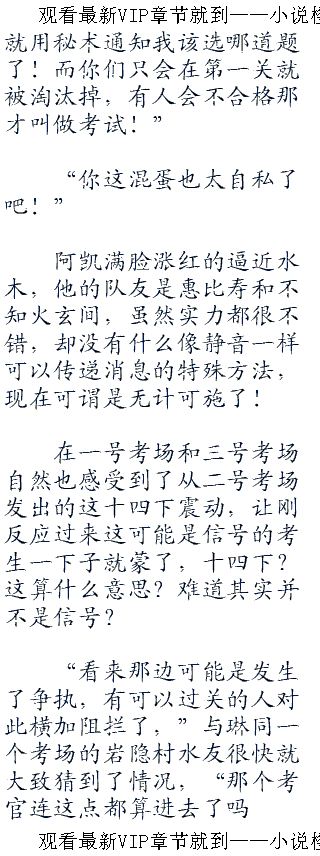 观看最新VIP章节就到——小说楼
就用秘术通知我该选哪道题
了！而你们只会在第一关就
被淘汰掉，有人会不合格那
才叫做考试！”
“你这混蛋也太自私了
吧！”
阿凯满脸涨红的逼近水
木，他的队友是惠比寿和不
知火玄间，虽然实力都很不
错，却没有什么像静音一样
可以传递消息的特殊方法，
现在可谓是无计可施了！
在一号考场和三号考场
自然也感受到了从二号考场
发出的这十四下震动，让刚
反应过来这可能是信号的考
生一下子就蒙了，十四下？
这算什么意思？难道其实并
不是信号？
“看来那边可能是发生
了争执，有可以过关的人对
此横加阻拦了，”与琳同一
个考场的岩隐村水友很快就
大致猜到了情况，“那个考
官连这点都算进去了吗
观看最新VIP章节就到——小说楼